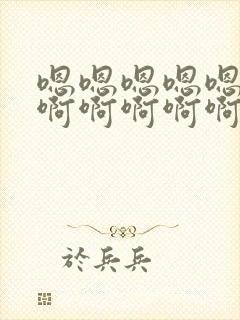 嗯嗯嗯嗯嗯
啊啊啊啊啊
於兵兵